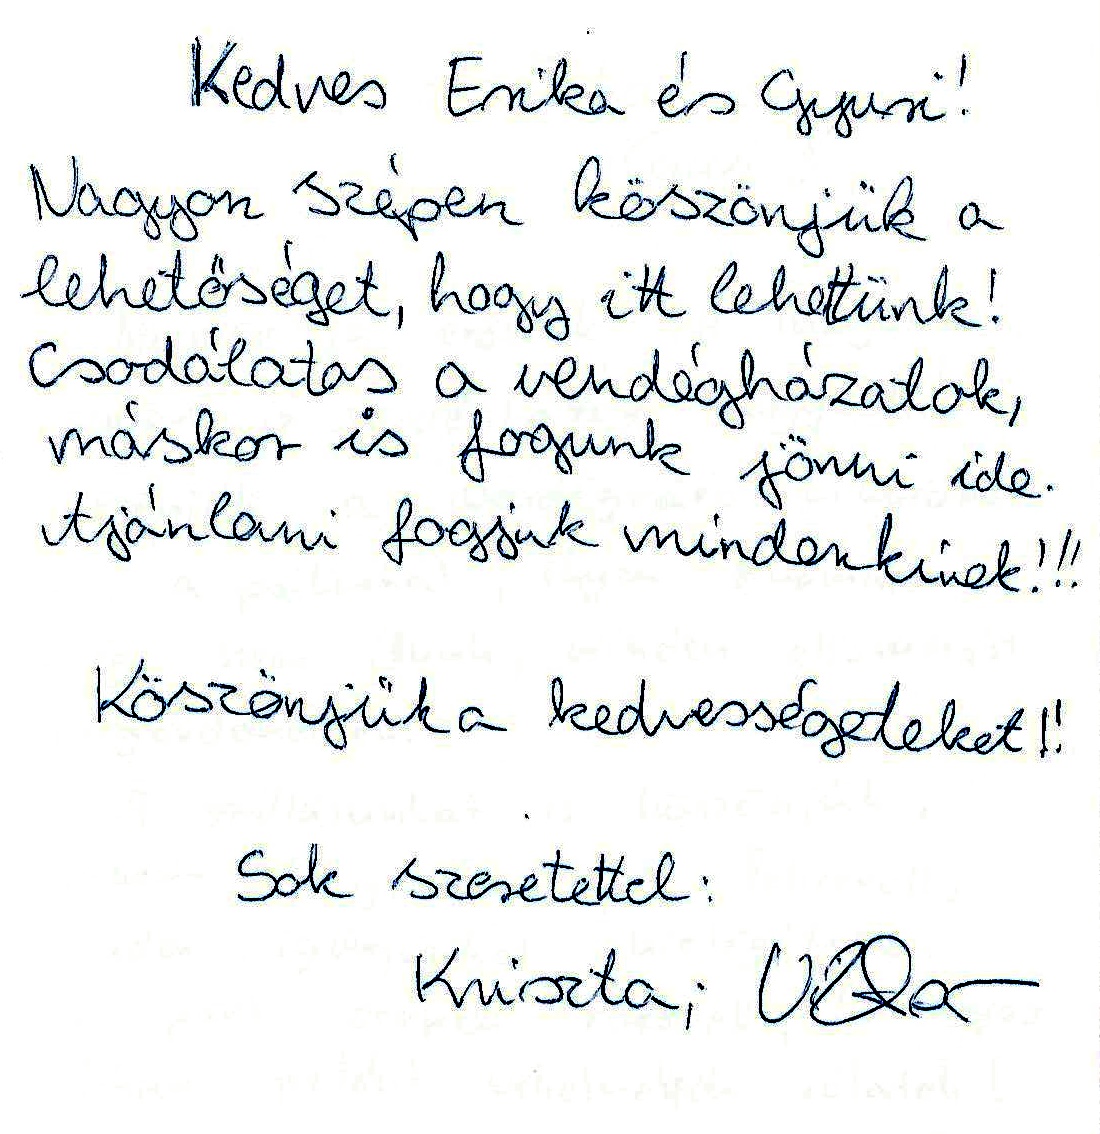 Kedves Erika és Gyuri!
Nagyon szépen köszönjük a
lehetőséget, hogy itt lehettünk!
Csodálatos a vendégházatok,
máskor is fogunk jönni ide.
Ajánlani fogjuk mindenkinek!!!
Köszönjük a kedvességeteket!!
Sok szeretettel:
Kriszta;